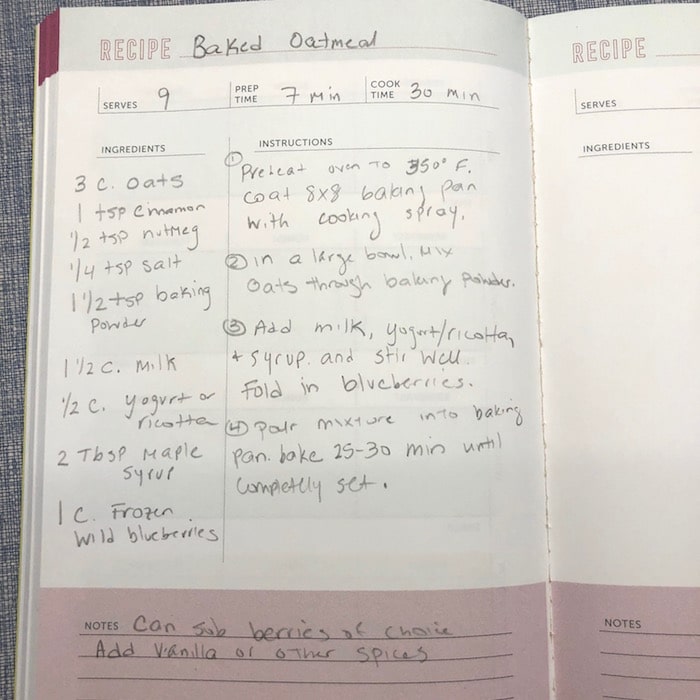 RECIPE Baked Oatmeal
SERVES 9
PREP TIME 7 min
COOK TIME 30 min
INGREDIENTS
3 c. oats
1 tsp cinnamon
1/2 tsp nutmeg
1/4 tsp salt
1 1/2 tsp baking
powder
1 1/2 c. milk
1/2 c. yogurt or
ricotta
2 Tbsp Maple
Syrup
1 c. Frozen
wild blueberries
INSTRUCTIONS
① Preheat oven to 350° F.
coat 8x8 baking pan
with cooking spray.
② in a large bowl, mix
oats through baking powder.
③ Add milk, yogurt/ricotta,
+ syrup. and stir well.
Fold in blueberries.
④ pour mixture into baking
pan. bake 25-30 min until
completly set.
NOTES Can sub berries of choice
Add vanilla or other spices
RECIPE
SERVES
INGREDIENTS
NOTES